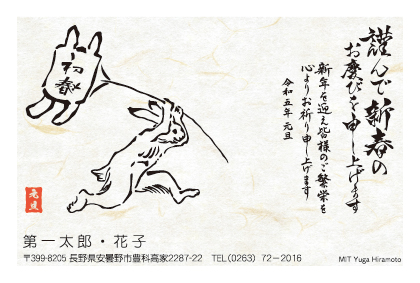 謹んで新春の
お慶びを申し上げます
新年を迎え皆様のご繁栄を
心よりお祈り申し上げます
令和五年 元旦
初春
元旦
第一太郎・花子
〒399-8205 長野県安曇野市豊科高家2287-22 TEL(0263) 72-2016
MIT Yuga Hiramoto